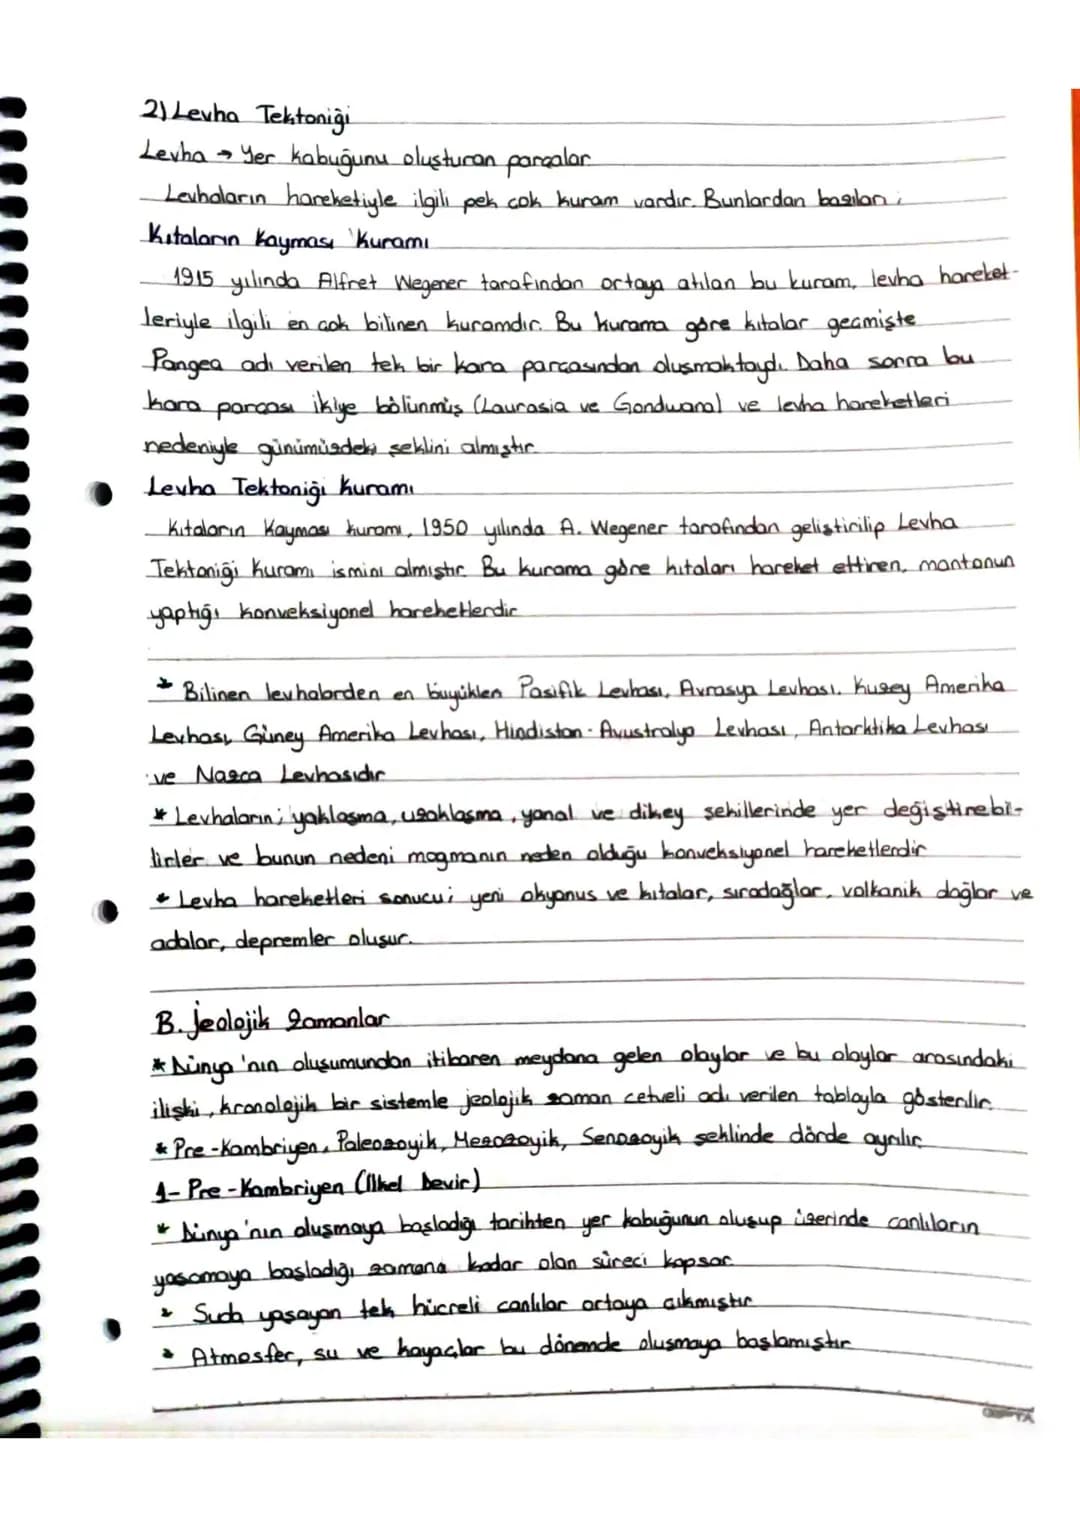 2) Levha Tektoniği
Levha → Yer kabuğunu oluşturan parçalar
Levhaların hareketiyle ilgili pek çok kuram vardır. Bunlardan bazıları;
Kıtaların Kayması Kuramı
1915 yılında Alfret Wegener tarafından ortaya atılan bu kuram, levha hareket-
leriyle ilgili en çok bilinen kuramdır. Bu kurama göre kıtalar geçmişte
Pangea adı verilen tek bir kara parçasından oluşmaktaydı. Daha sonra bu
kara parçası ikiye bölünmüş (Laurasia ve Gondwana) ve levha hareketleri
nedeniyle günümüzdeki şeklini almıştır.
Levha Tektoniği Kuramı
Kıtaların Kayması kuramı, 1950 yılında A. Wegener tarafından geliştirilip Levha
Tektoniği Kuramı ismini almıştır. Bu kurama göre kıtaları hareket ettiren, mantonun
yaptığı konveksiyonel hareketlerdir
* Bilinen levhalardan en büyükleri Pasifik Levhası, Avrasya Levhası, Kuzey Amerika
Levhası, Güney Amerika Levhası, Hindistan - Avustralya Levhası, Antarktika Levhası
ve Nazca Levhasıdır
* Levhaların; yaklaşma, uzaklaşma, yanal ve dikey şekillerinde yer değiştirebi-
lirler ve bunun nedeni magmanın neden olduğu konveksiyonel hareketlerdir
* Levha hareketleri sonucu; yeni okyanus ve kıtalar, sıradağlar, volkanik dağlar ve
adalar, depremler oluşur.
B. Jeolojik Zamanlar
* Dünya'nın oluşumundan itibaren meydana gelen olaylar ve bu olaylar arasındaki
ilişki, kronolojik bir sistemle jeolojik zaman cetveli adı verilen tabloyla gösterilir.
* Pre-Kambriyen, Paleozoyik, Mezozoyik, Senozoyik şeklinde dörde ayrılır
1- Pre-Kambriyen (İlkel Devir)
* Dünya'nın oluşmaya başladığı tarihten yer kabuğunun oluşup üzerinde canlıların
yaşamaya başladığı zamana kadar olan süreci kapsar.
* Suda yaşayan tek hücreli canlılar ortaya çıkmıştır
* Atmosfer, su ve kayaçlar bu dönemde oluşmaya başlamıştır